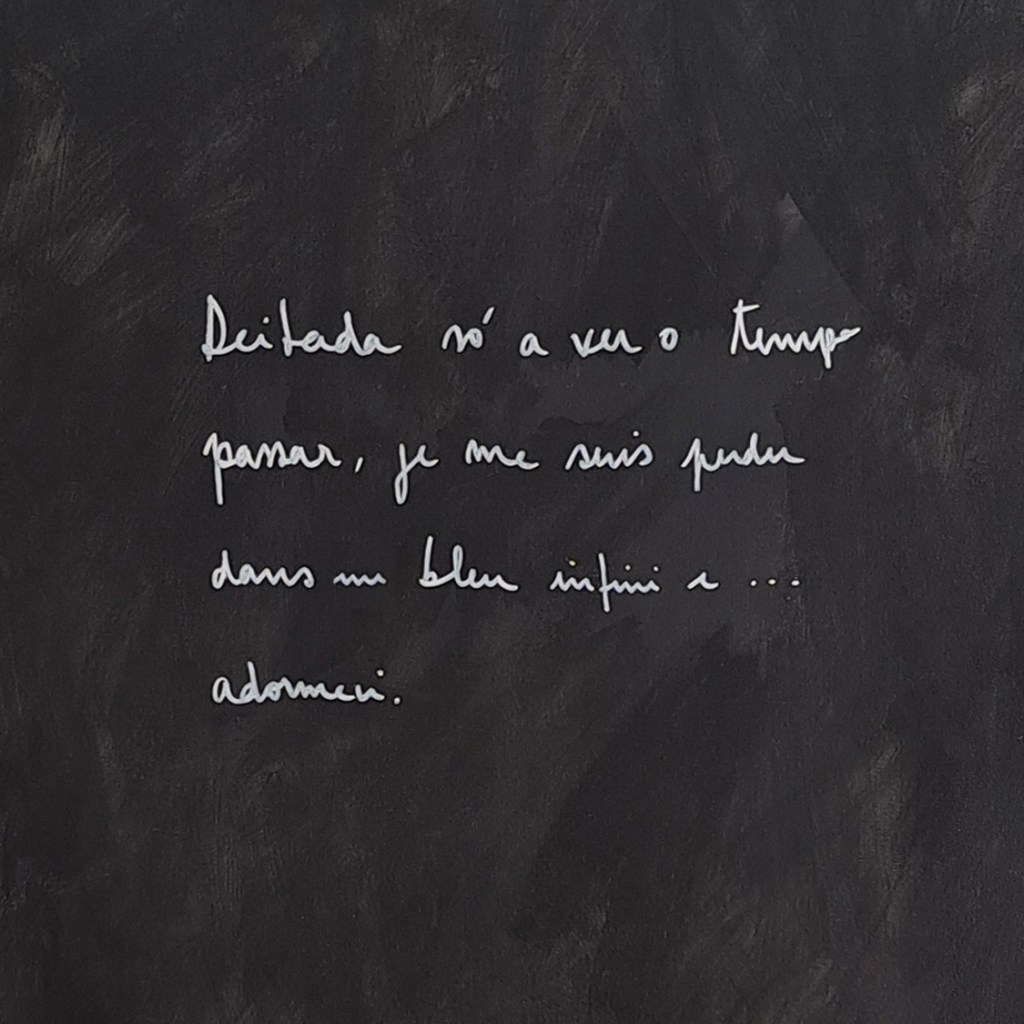 Deitada só a ver o tempo
passar, je me suis perdu
dans un bleu infini e ...
adormeci.